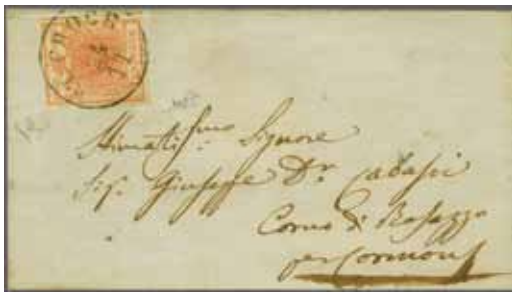 Stimatissmo Signore
Sigr. Giuseppe Dr. Cabassi
Corno di Rosazzo
per Cormons